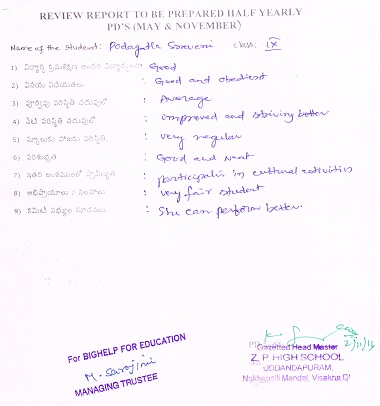 REVIEW REPORT TO BE PREPARED HALF YEARLY
PD'S (MAY & NOVEMBER)
Name of the student: Podagatla Sravani class: IX
1) విద్యార్థి క్రమశిక్షణ Good
2) వినయ విధేయతలు : Good and obedient
3) పూర్వపు పరిస్థితి చదువులో : Average
4) నేటి పరిస్థితి చదువులో : improved and striving better
5) స్కూలుకు హాజరు పరిస్థితి : very regular
6) పరిశుభ్రత : Good and neat
7) ఇతర అంశములలో ప్రావీణ్యత : participates in cultural activities
8) అభిప్రాయాలు / సలహాలు : very fair student
9) కమిటీ సభ్యుల సూచనలు : She can perform better.
For BIGHELP FOR EDUCATION
M. Sarojini
MANAGING TRUSTEE
Gazetted Head Master
Z. P. HIGH SCHOOL
UDDANDAPURAM,
Nakkapalli Mandal, Visakha Dt